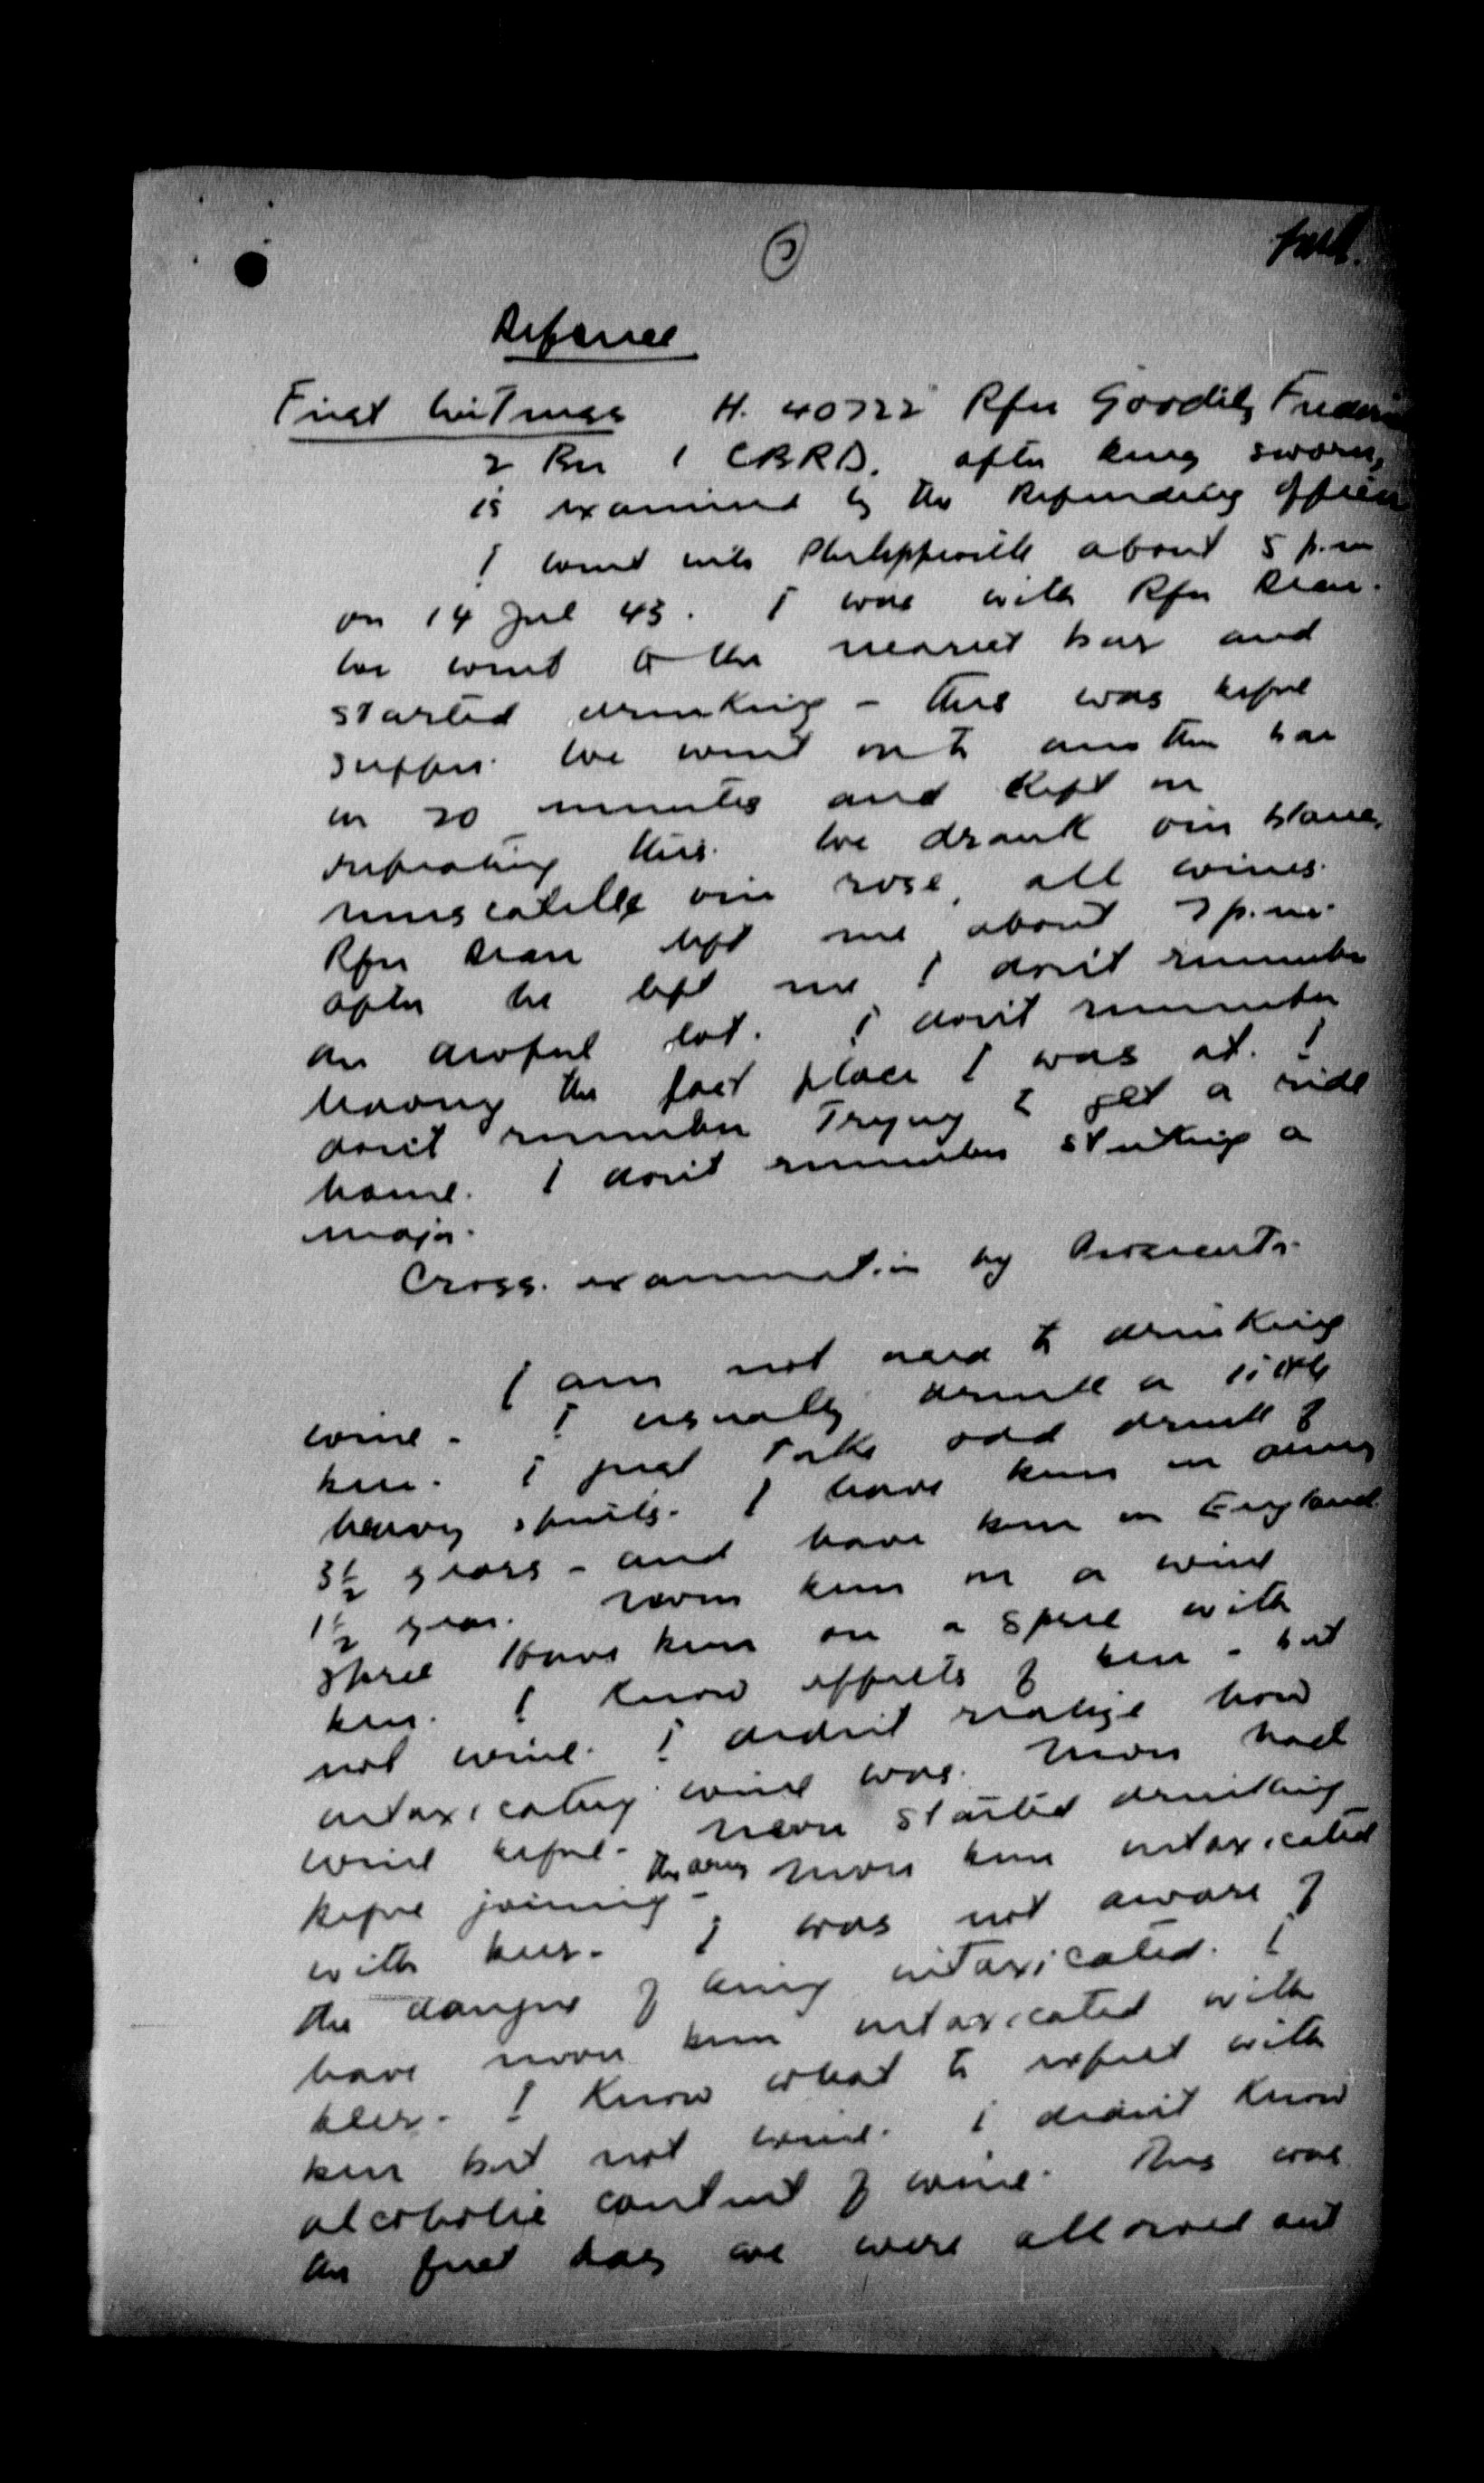 Defence
First Witness H. 40722 Rfn Goodily Frederi
2 Bn 1 CBRD. after being sworn,
is examined by the Defending Officer
I went into Philippeville about 5 p.m
on 14 Jul 43. I was with Rfn Dean.
We went to the nearest bar and
started drinking - this was before
supper. We went on to another bar
in 20 minutes and kept on
repeating this. We drank vin blanc,
muscatelle vin rose, all wines.
Rfn Dean left me about 7 p.m.
After he left me I don't remember
an awful lot. I don't remember
leaving the last place I was at. I
don't remember trying to get a ride
home. I don't remember striking a
major.
Cross-examination by
I am not used to drinking
wine. I usually drink a little
beer. I just take odd drink of
heavy spirits. I have been in army
3½ years - and have been in England
1½ year. never been on a wine
spree. Have been on a spree with
beer. I know effects of beer - but
not wine. I didn't realize how
intoxicating wine was. Never had
wine before. Never started drinking
before joining the army. Never been intoxicated
with beer. I was not aware of
the danger of being intoxicated. I
have never been intoxicated with
beer. I know what to expect with
beer but not wine. I didn't know
alcoholic content of wine. This was
the first day we were allowed out